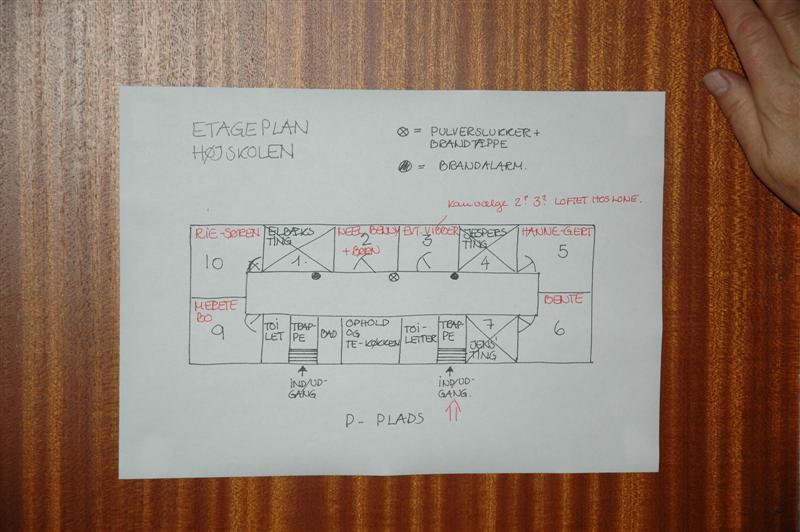 ETAGEPLAN
HØJSKOLEN
= PULVERSLUKKER +
BRANDTÆPPE
= BRANDALARM.
Kan vælge 2? 3? LOFTET HOS LONE.
RIE-SØREN
10
ELBÆKS
TING
1.
NEEL BENNY
2
+ BØRN
EVT. VIBBER
3
JESPERS
TING
4
HANNE-GERT
5
MERETE
BO
9
TOI
LET
TRAP-
PE
BAD
OPHOLD
OG
TE-KØKKEN
TOI-
LETTER
TRAP-
PE
7
JENS'
TING
BENTE
6
IND/UD-
GANG
IND/UD-
GANG.
P- PLADS